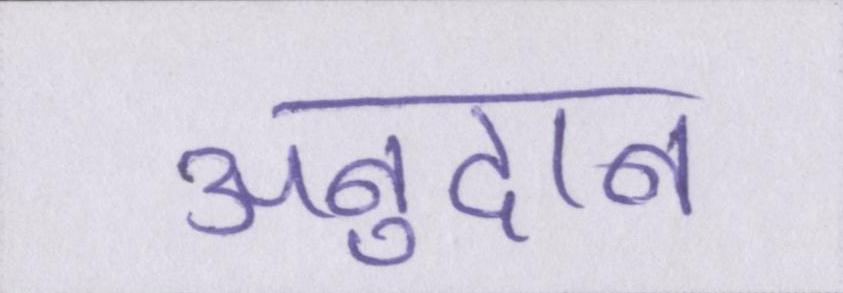 अनुदान